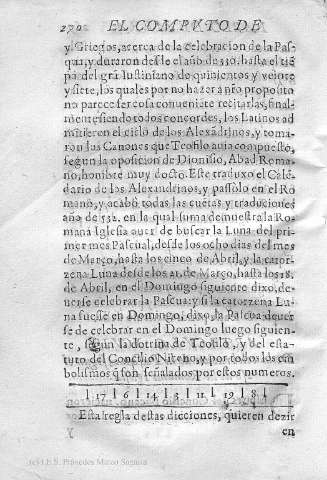 270 EL COMPUTO DE
y Griegos, acerca de la celebracion de la Pas-
qua, y duraron desde el año de 330, hasta el tiē
po del grā Iustiniano de quinientos y veinte
y siete, los quales por no hazer a nr̄o proposito
no parece ser cosa conveniēte recitarlas, final-
mente siendo todos concordes, los Latinos ad
mitieren el ciclo de los Alexādrinos, y toma-
ron los Canones que Teofilo auia compuesto,
segun la oposicion de Dionisio, Abad Roma-
no, hombre muy docto. Este traduxo el Calē-
dario de los Alexandrinos, y passòlo en el Ro
mano, y acabò todas las cuētas y traduciones
año de 532. en la qual suma demuestra la Ro-
mana Iglesia auer de buscar la Luna del pri-
mer mes Pascual, desde los ocho dias del mes
de Março, hasta los cinco de Abril, y la cator-
zena Luna desde los 21. de Março, hasta los 18.
de Abril, en el Domingo siguiente dixo, de-
uerse celebrar la Pascua: y si la catorzena Lu-
na fuesse en Domingo, dixo, la Pascua deuer
se de celebrar en el Domingo luego siguien-
te, segun la dotrina de Teofilo, y del esta-
tuto del Concilio Niteno, y por todos los em
bolismos q̄ son señalados por estos numeros.
17 | 6 | 14 | 3 | 11 | 19 | 8
Esta regla destas dicciones, quieren dezir
y en
(c) I.E.S. Práxedes Mateo Sagasta